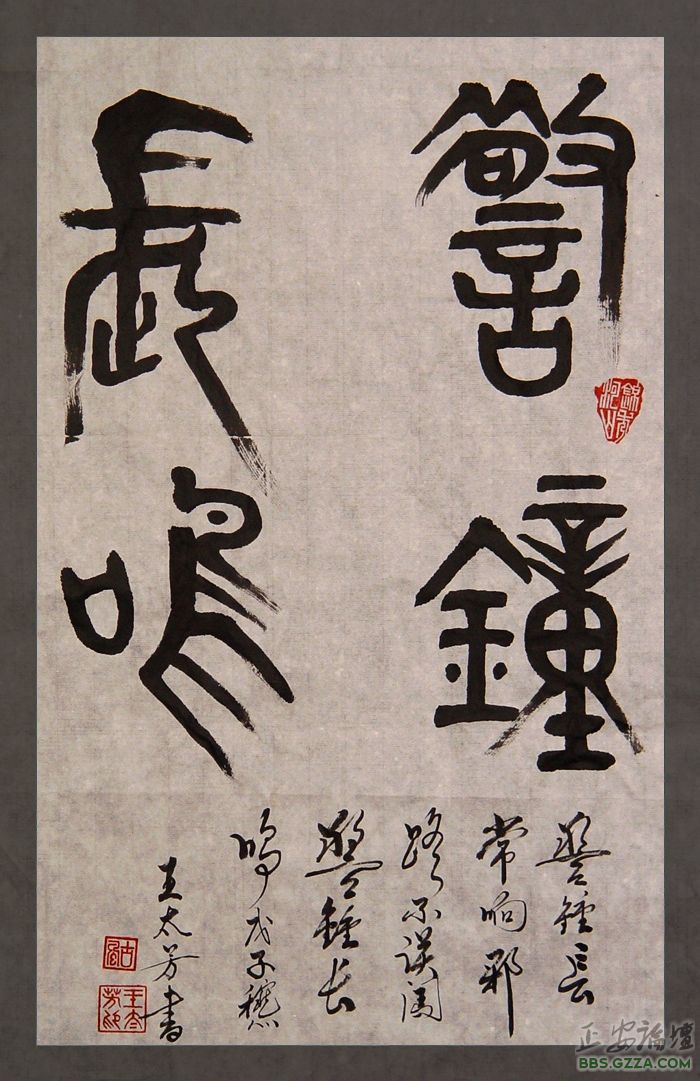 警鐘
長鳴
警钟长
常响邪
路不误闯
警钟长
鸣戊子穐
王太芳书
王太芳印
正安論壇
BBS.GZZA.COM